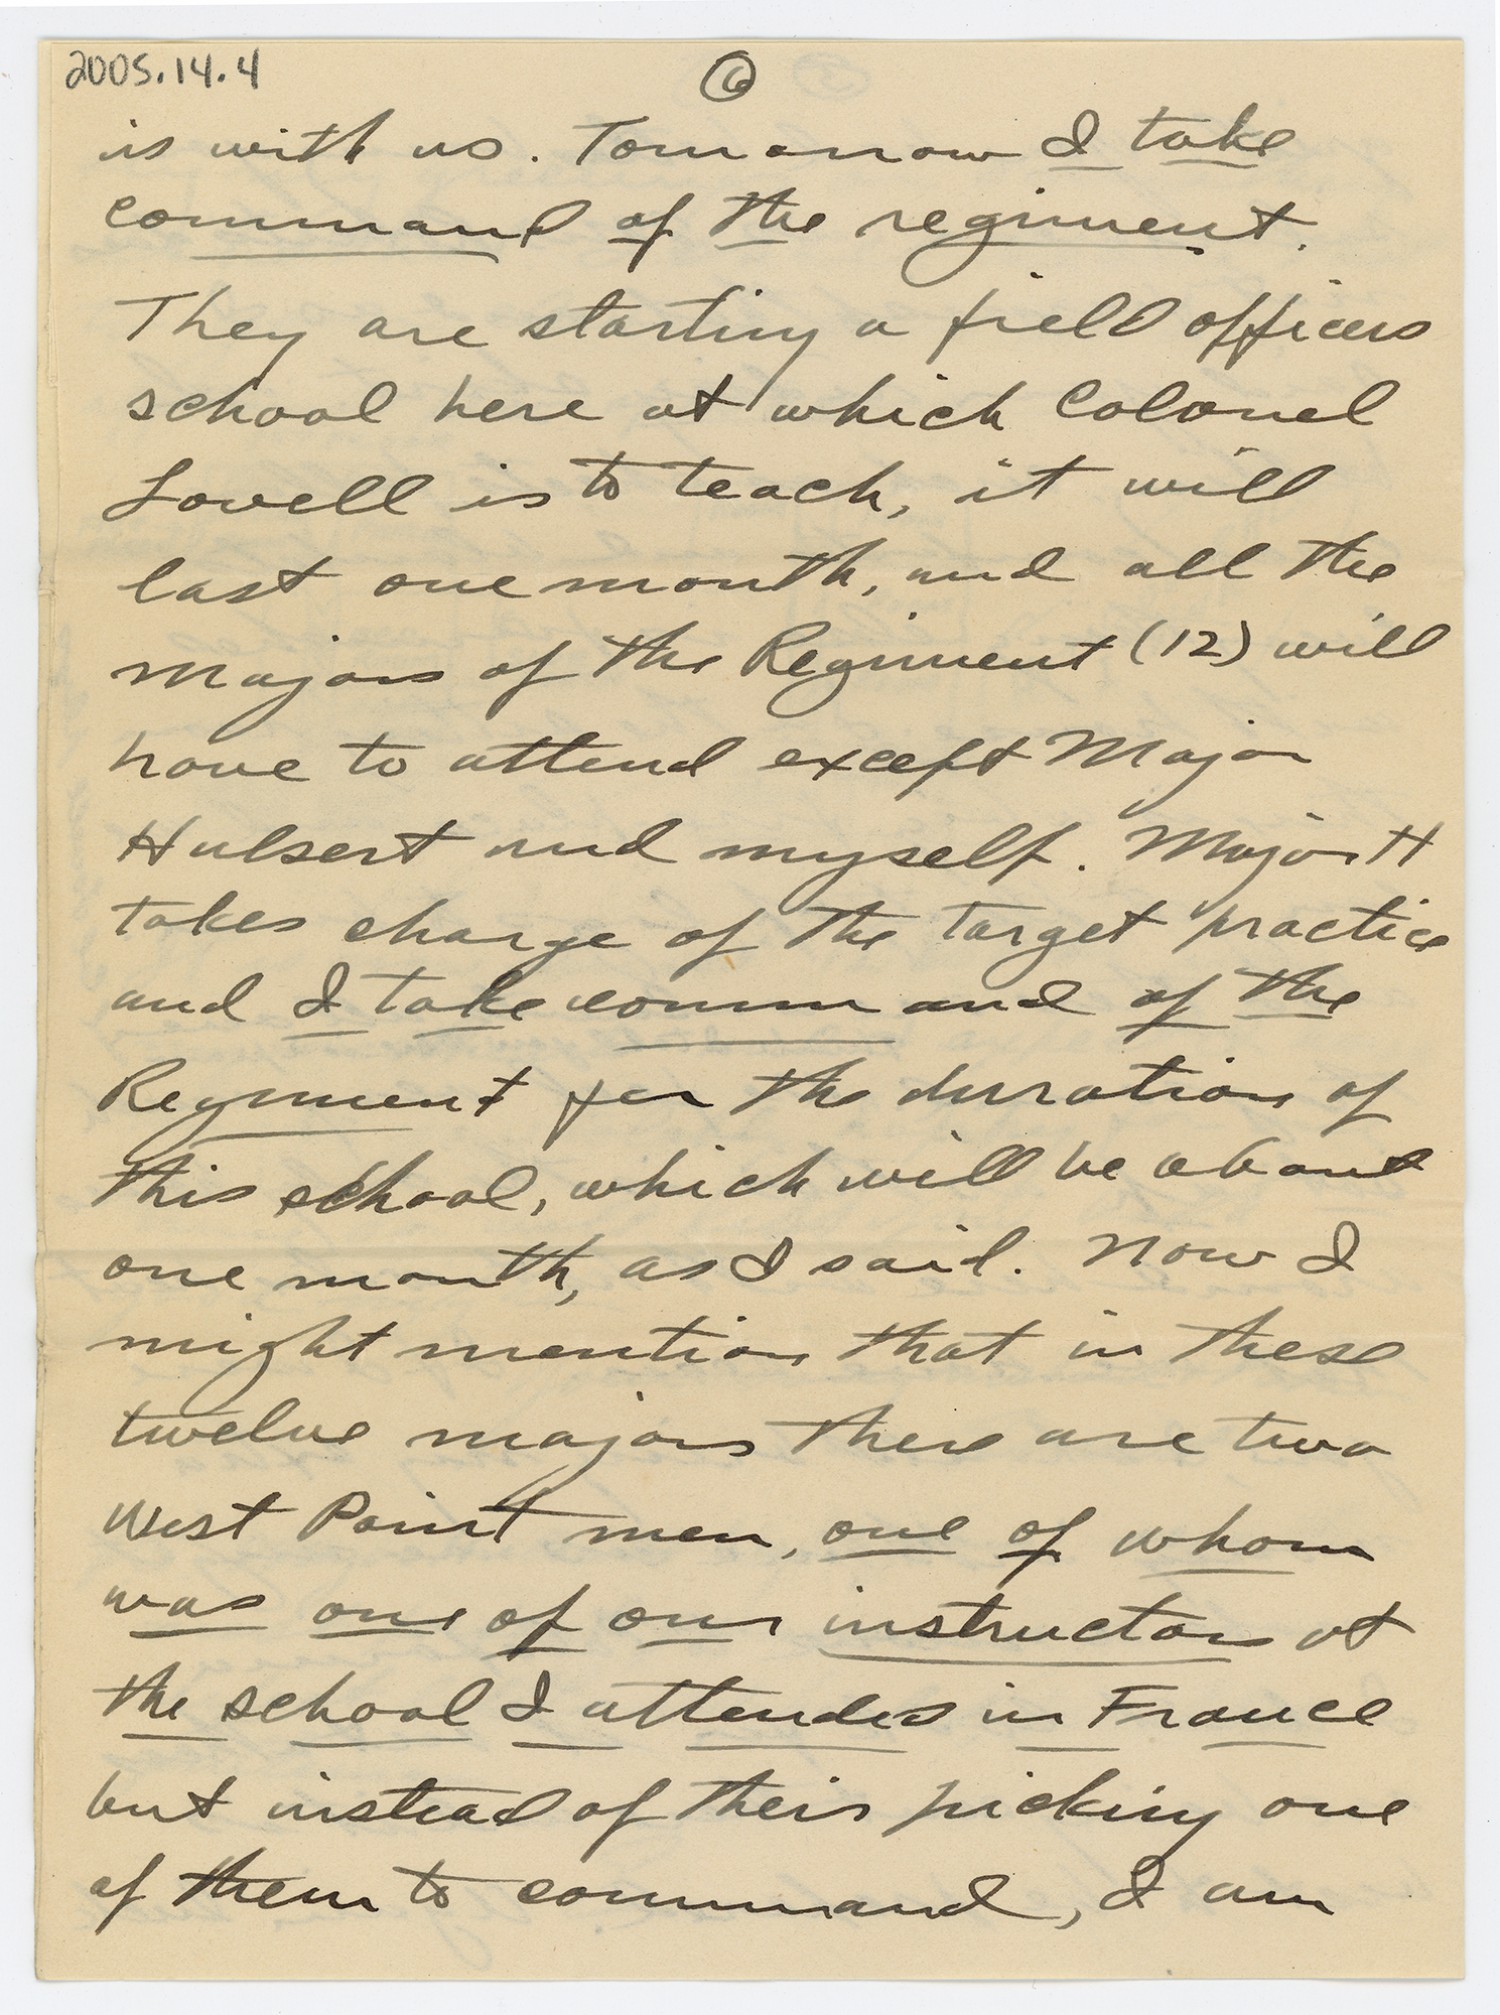 2005.14.4
6
is with us. Tomorrow I take
command of the regiment.
They are starting a field officers
school here at which Colonel
Lovell is to teach, it will
last one month, and all the
Majors of the Regiment (12) will
have to attend except Major
Hulsert and myself. Major H
takes charge of the target practice
and I take command of the
Regiment for the duration of
this school, which will be about
one month, as I said. Now I
might mention that in these
twelve majors there are two
West Point men, one of whom
was one of our instructors at
the school I attended in France
but instead of their picking one
of them to command, I am